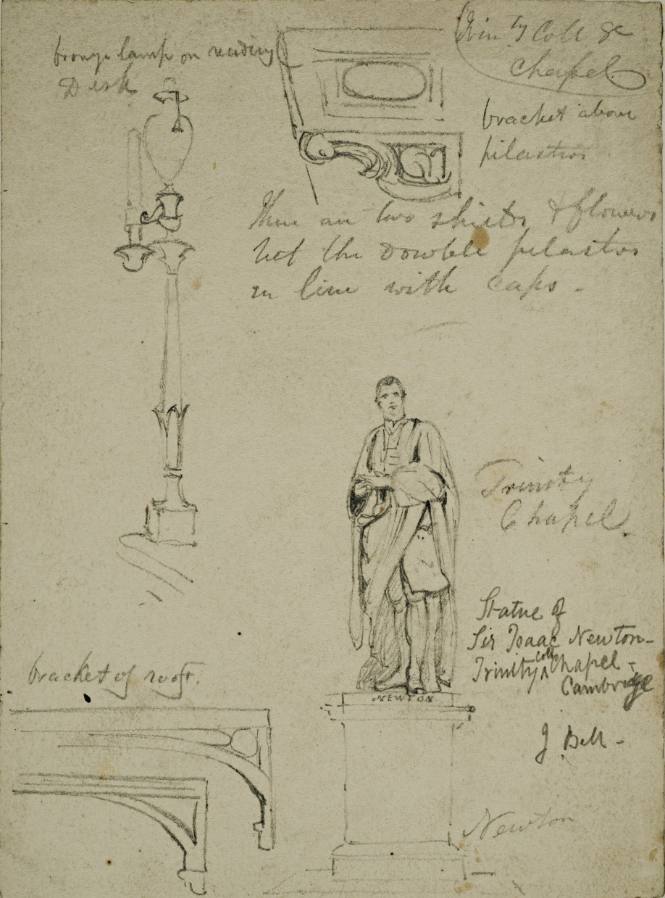 bronze lamp on reading
Desk
Trinity Coll
Chapel
bracket above
pilastros
There are two shields & flowers
the double pilastros
in line with caps -
Trinity
Chapel.
Statue of
Sir Isaac Newton -
Trinity Coll Chapel -
Cambridge
J Bell -
bracket of roof.
NEWTON
Newton